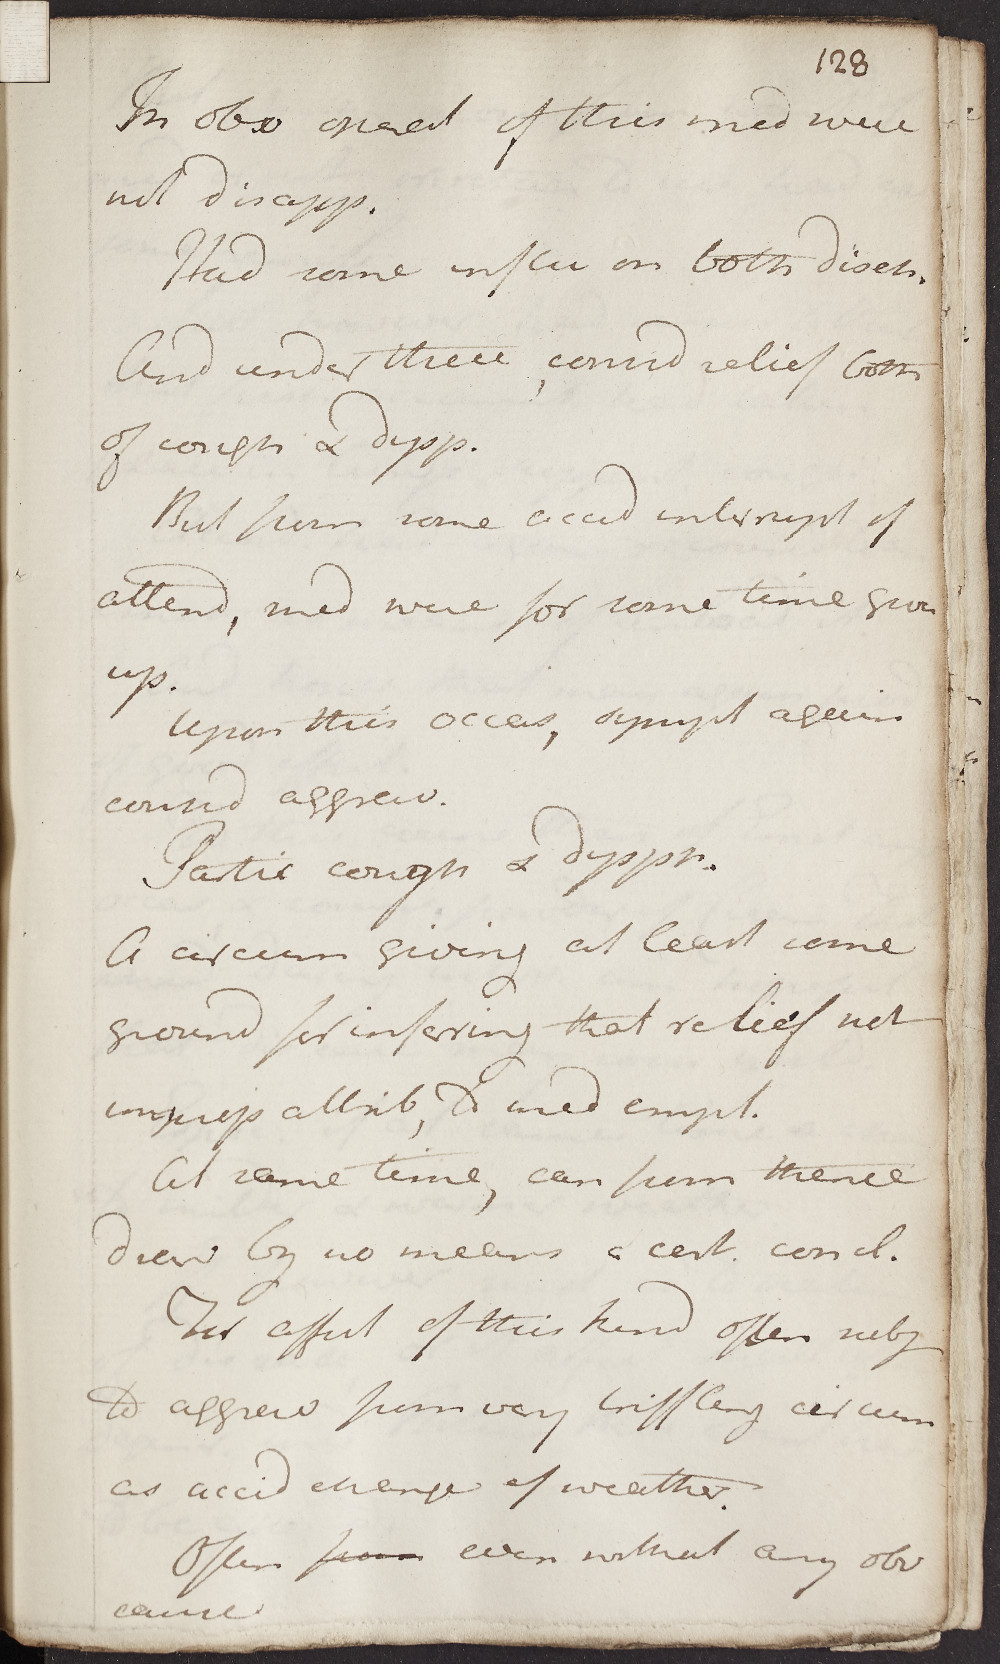 128
In obv operat of this med were
not disapp.
Had some influ on both disch.
And under these, consid relief both
of cough & dysp.
But from some accid interrupt of
attend, med were for some time given
up.
Upon this occas, sympt again
consid aggrav.
Partic cough & dyspn.
A circum giving at least some
ground for inferring that relief not
improp attrib, to med empl.
At same time, can from thence
draw by no means a cert. concl.
For affect of this kind often subj
to aggrav from very triffling circum
as accid change of weather.
Often from even without any obv
cause